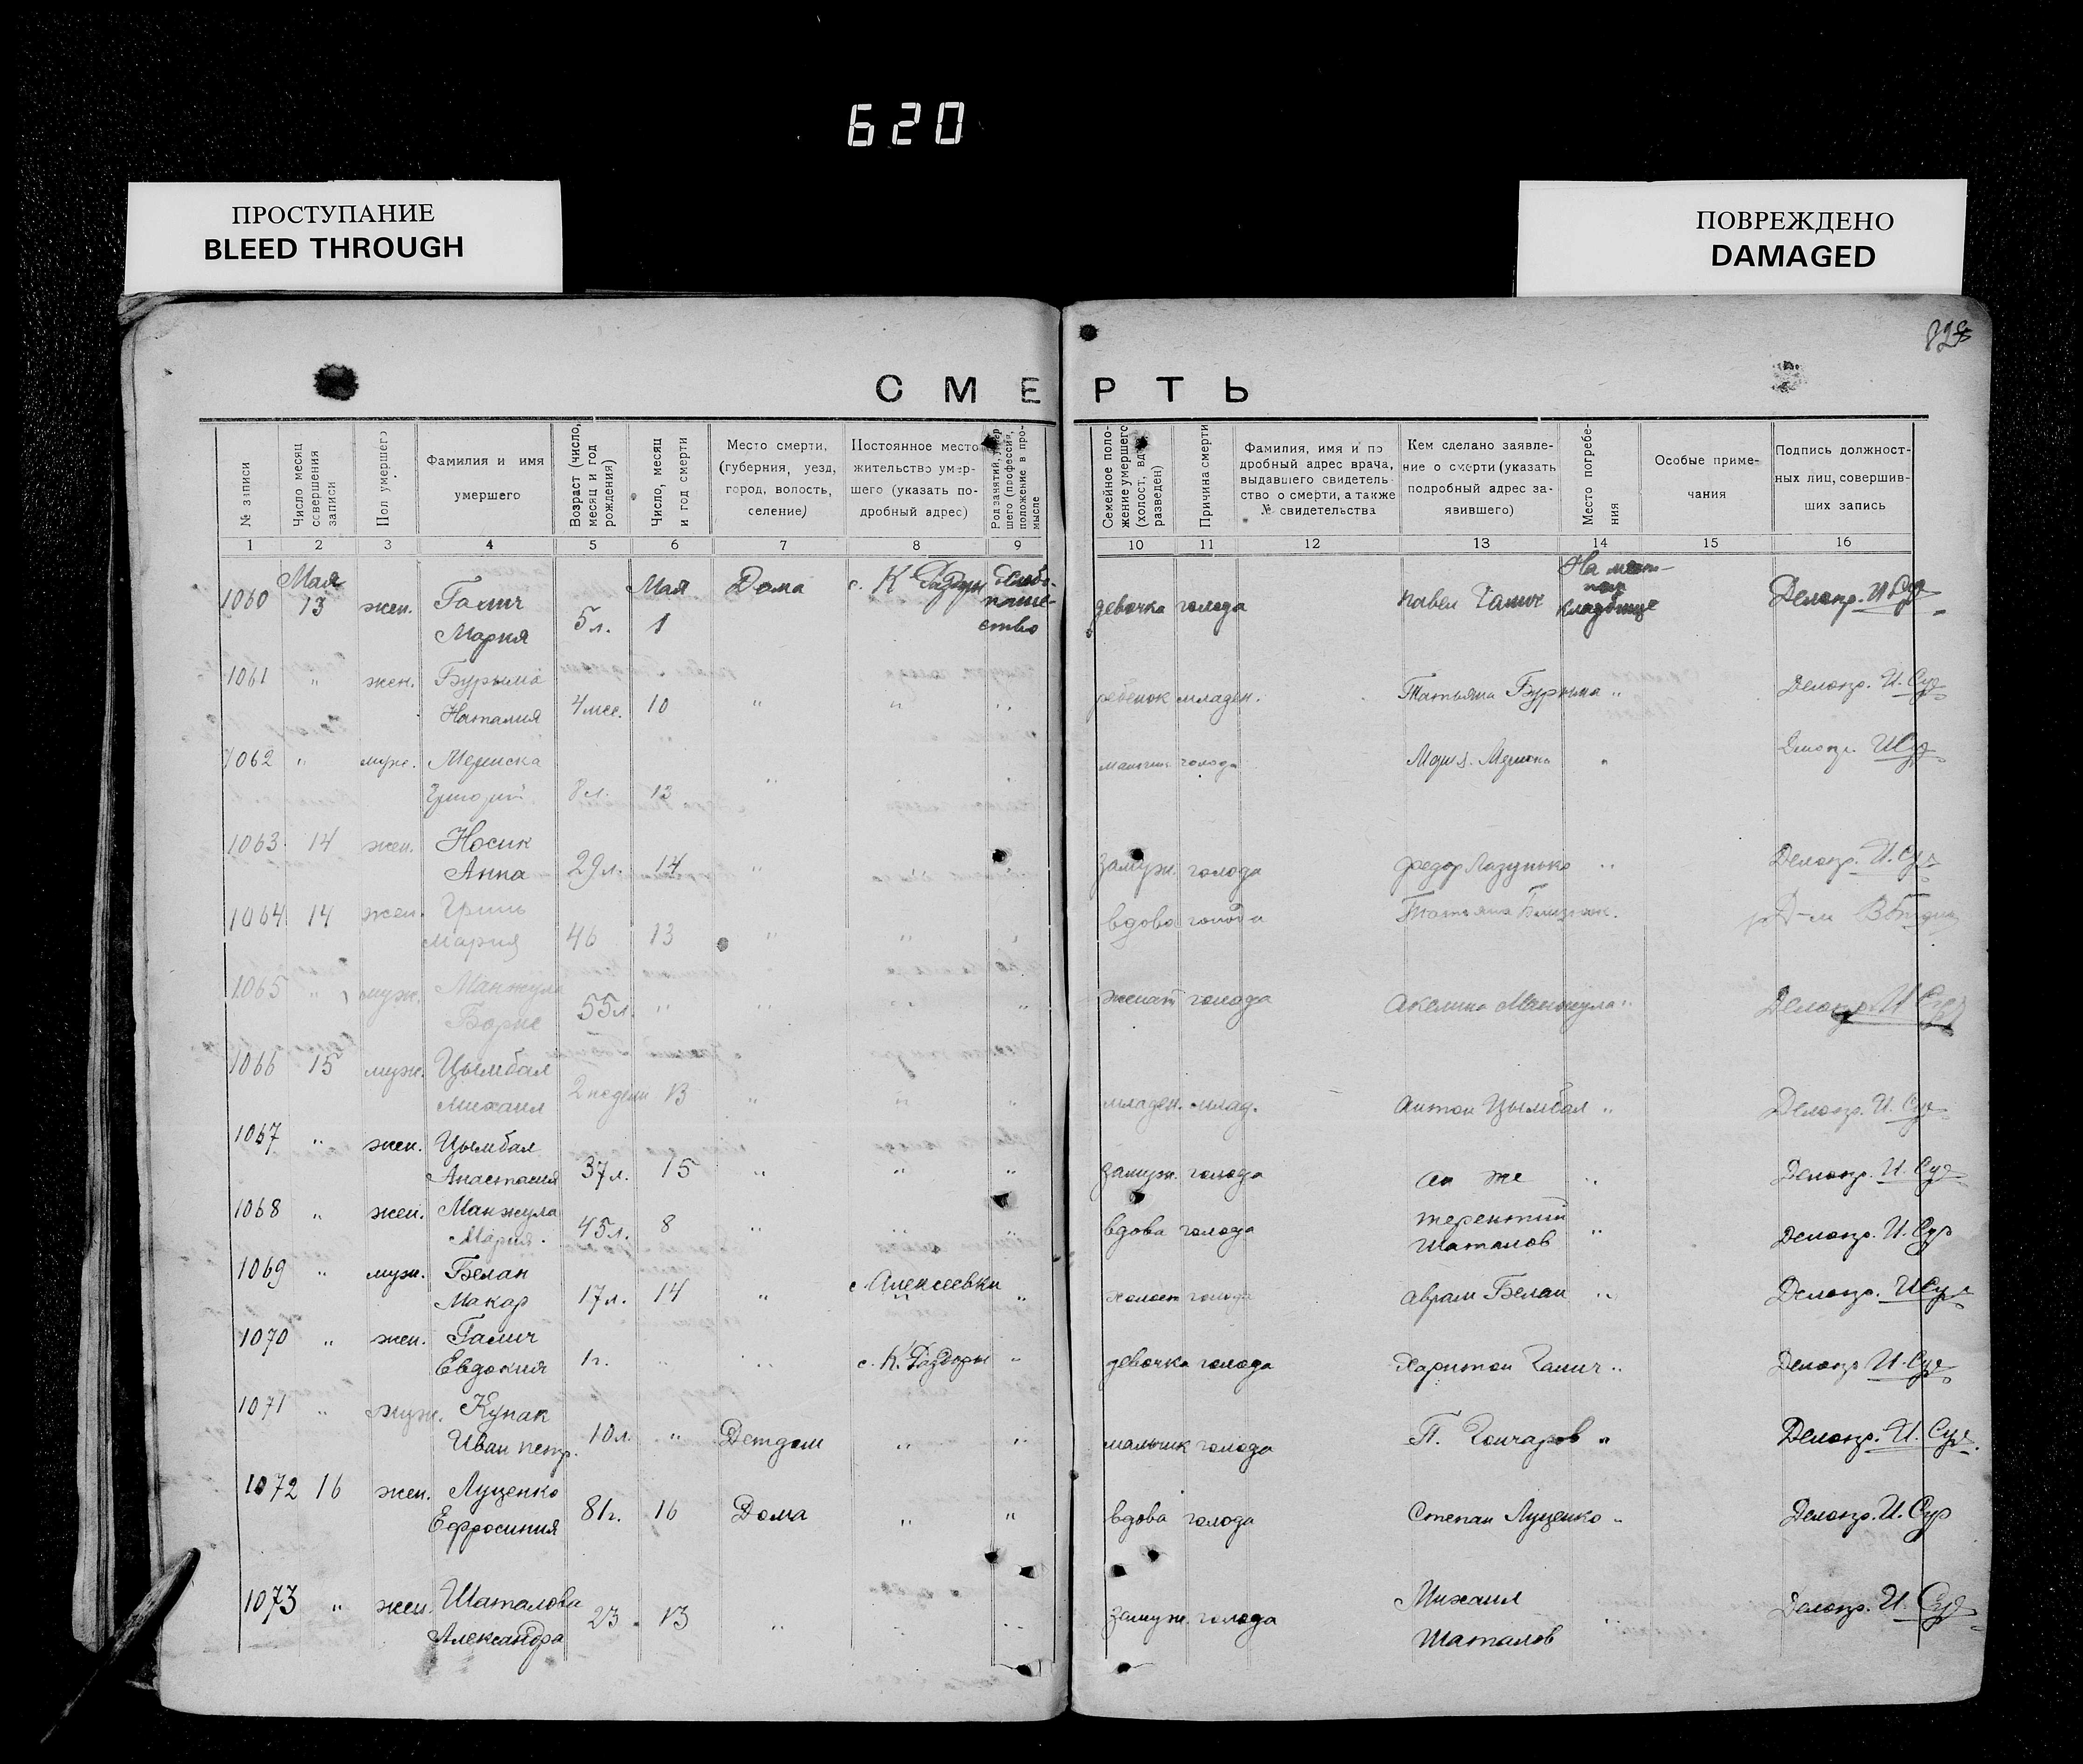 620
ПРОСТУПАНИЕ
BLEED THROUGH
ПОВРЕЖДЕНО
DAMAGED
СМЕРТЬ
№ записи
Число месяц совершения записи
Пол умершего
Фамилия и имя умершего
Возраст (число, месяц и год рождения)
Число, месяц и год смерти
Место смерти, (губерния, уезд, город, волость, селение)
Постоянное место жительство умершего (указать подробный адрес)
Род занятий, умершего (профессия, положение в промысле
Семейное положение умершего (холост, вдов, разведен)
Причина смерти
Фамилия, имя и подробный адрес врача, выдавшего свидетельство о смерти, а также № свидетельства
Кем сделано заявление о смерти (указать подробный адрес заявившего)
Место погребения
Особые примечания
Подпись должностных лиц, совершивших запись
1 2 3 4 5 6 7 8 9 10 11 12 13 14 15 16
1060 Мая 13 жен. Галич Мария 5 л. Мая 1 Дома с. К Раздоры девочка голода Павел Галич кладбище Делопр. И Сур
1061 " жен. Бурыма Наталия 4 мес. 10 " " " ребенок младен. Татьяна Бурыма " Делопр. И. Сур
1062 " муж. Григорий 8 л. 13 " мальчик голода "
1063 14 жен. Носик Анна 29 л. 14 " " замуж. голода Федор " Делопр. И. Сур
1064 14 жен. Гринь Мария 46 13 " " " вдова голода Татьяна
1065 " муж. Манжула Борис 55 л. " " " " женат голода Акелина Манжула " Делопр. И Сур
1066 15 муж. Цымбал Михаил 2 недели 13 " " " младен. млад. Антон Цымбал " Делопр. И. Сур
1067 " жен. Цымбал Анастасия 37 л. 15 " " " замуж. голода он же " Делопр. И. Сур
1068 " жен. Манжула Мария. 45 л. 8 " " " вдова голода Терентий Шаталов " Делопр. И. Сур
1069 " муж. Белан Макар 17 л. 14 " с. Алексеевки " холост голода Аврам Белан " Делопр. И Сур
1070 " жен. Галич Евдокия 1 г. " " с. К. Раздоры " девочка голода Харитон Галич " Делопр. И. Сур
1071 " муж. Купак Иван петр. 10 л. " Детдом " " мальчик голода П. Гончаров " Делопр. И. Сур
1072 16 жен. Луценко Ефросиния 81 г. 16 Дома " " вдова голода Степан Луценко " Делопр. И. Сур
1073 " жен. Шаталова Александра 23 13 " " " замуж. голода Михаил Шаталов " Делопр. И. Сур